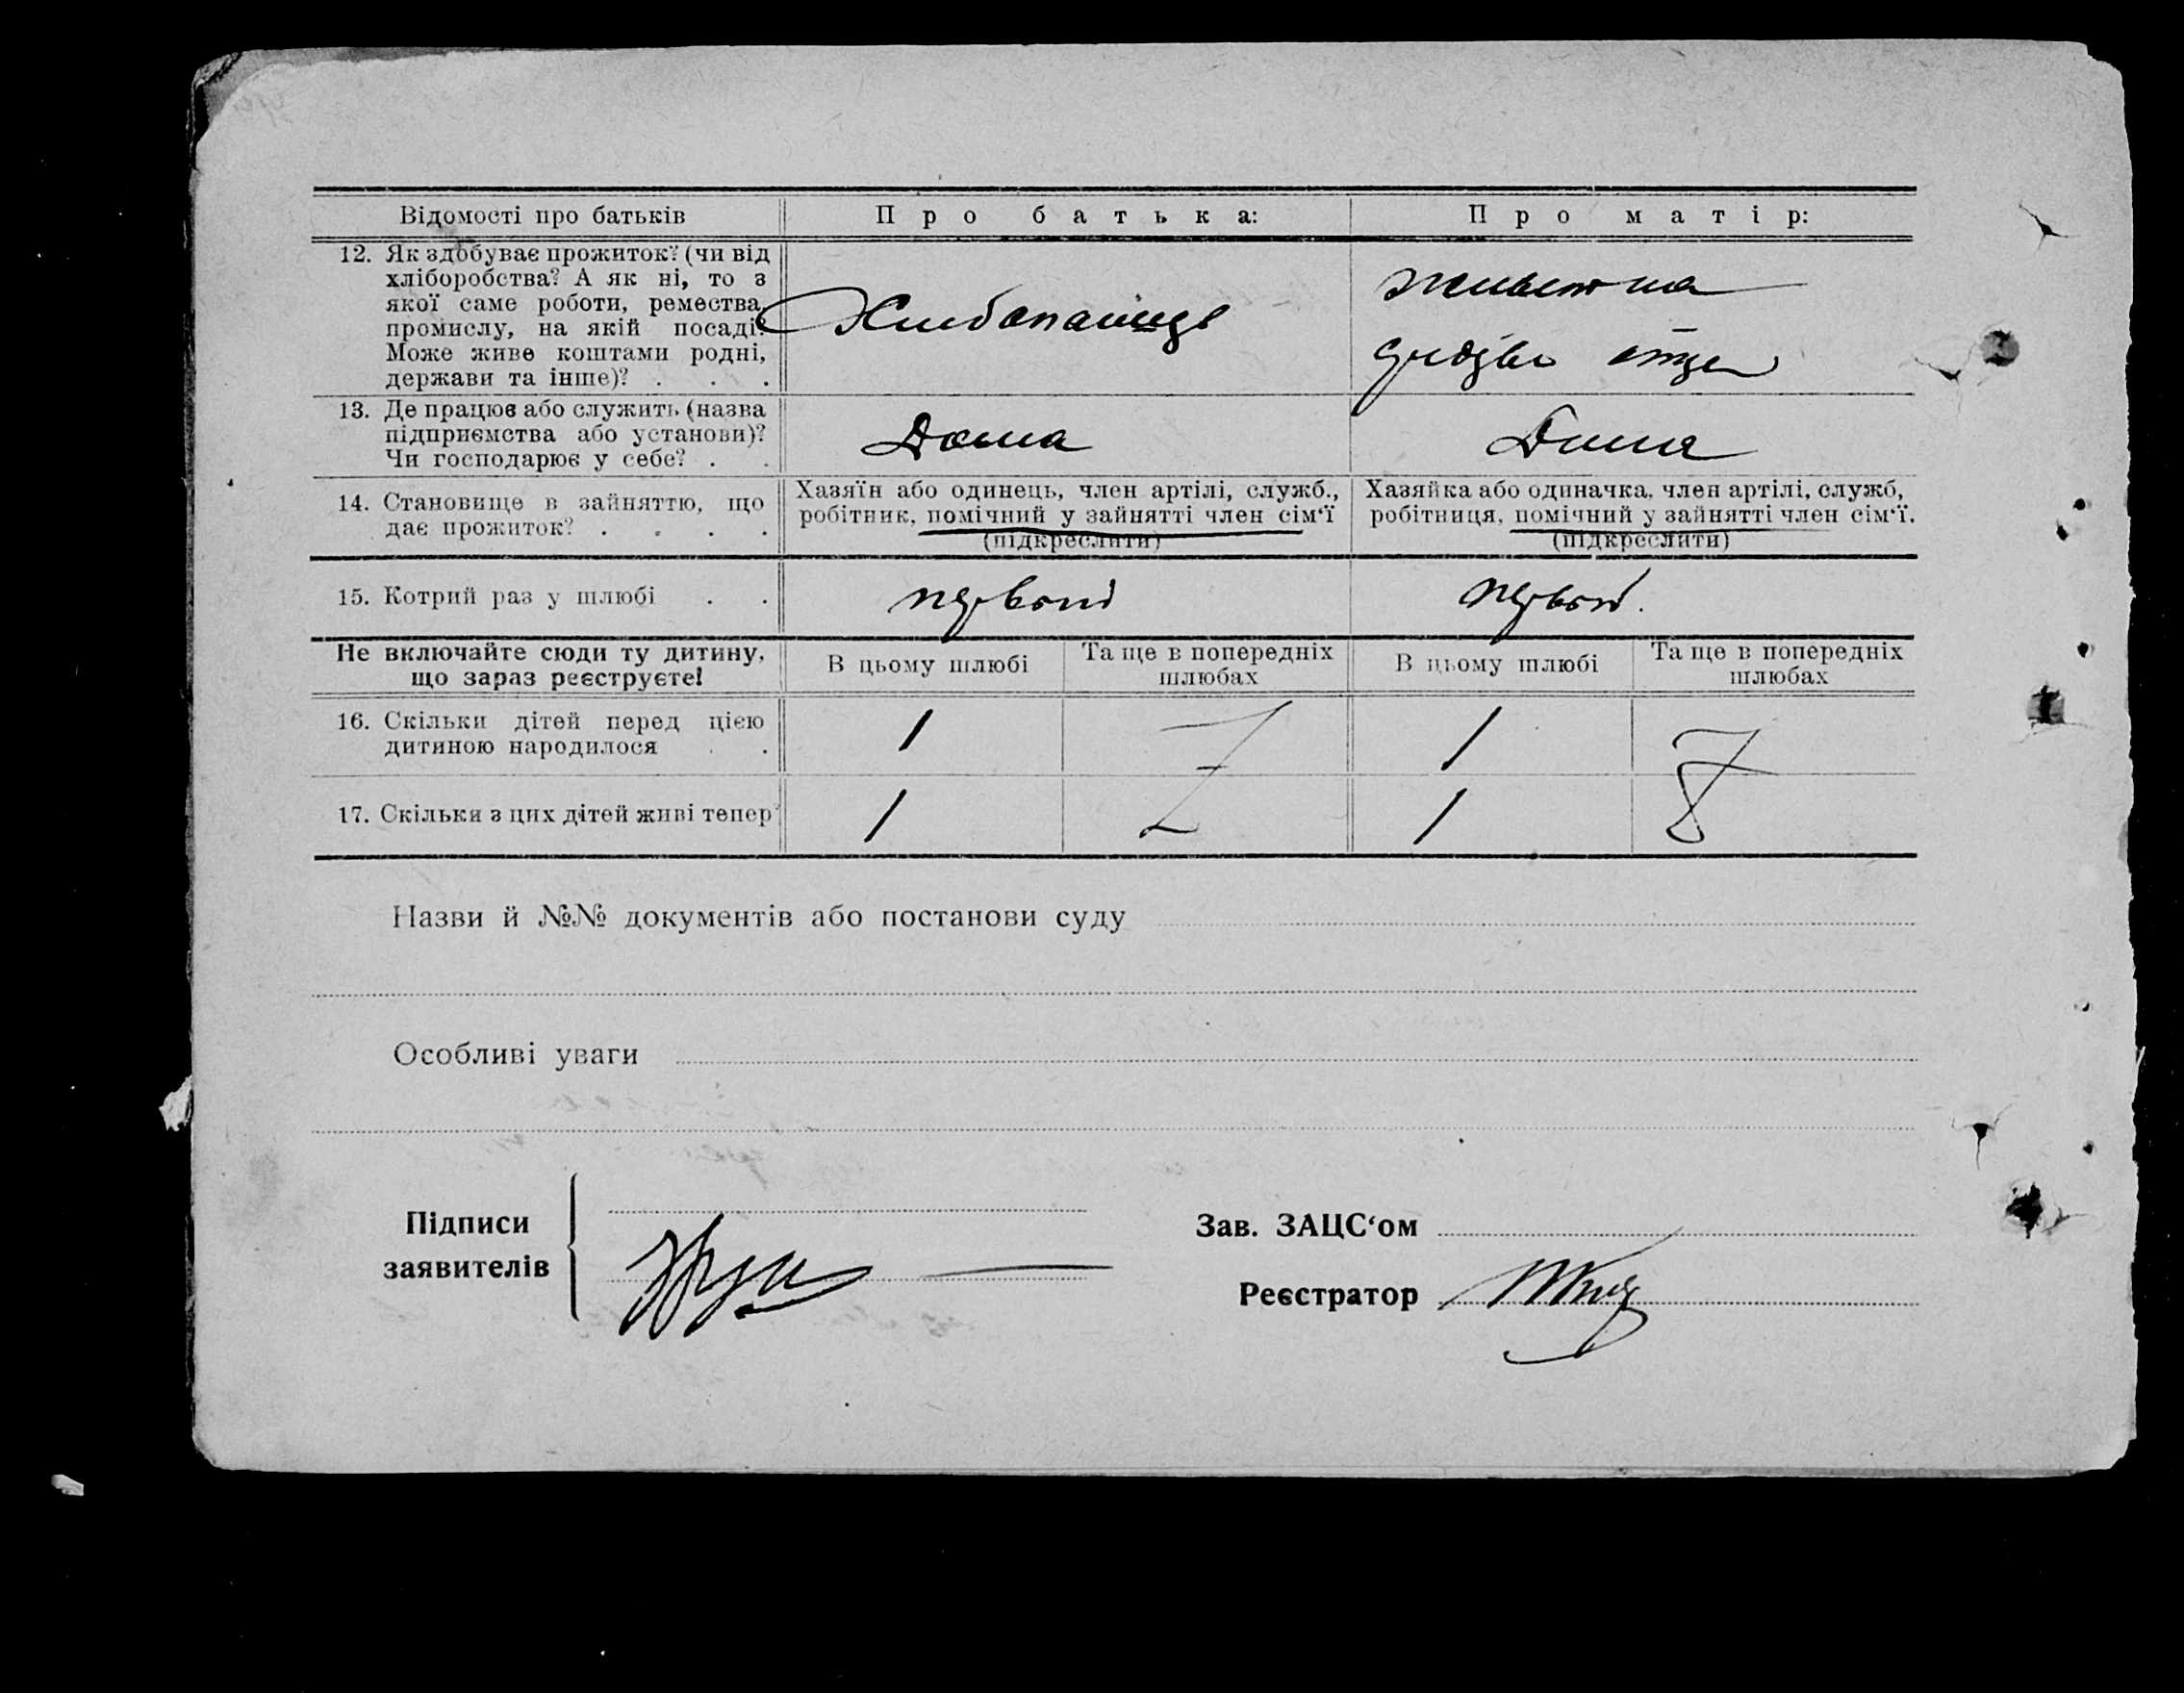 Відомості про батьків
Про батька:
Про матір:
12. Як здобуває прожиток? (чи від
хліборобства? А як ні, то з
якої саме роботи, ремества,
промислу, на якій посаді?
Може живе коштами родні,
держави та інше)? . . .
живет на
отца
13. Де працює або служить (назва
підприємства або установи)?
Чи господарює у себе? . .
Дома
Дома
14. Становище в зайняттю, що
дає прожиток? . . . .
Хазяїн або одинець, член артілі, служб.,
робітник, помічний у зайнятті член сім‘ї
(підкреслити)
Хазяйка або одиначка, член артілі, служб,
робітниця, помічний у зайнятті член сім‘ї.
(підкреслити)
15. Котрий раз у шлюбі . .
первый
первый.
Не включайте сюди ту дитину,
що зараз реєструєте!
В цьому шлюбі
Та ще в попередніх
шлюбах
В цьому шлюбі
Та ще в попередніх
шлюбах
16. Скільки дітей перед цією
дитиною народилося . .
1
1
17. Скільки з цих дітей живі тепер?
1
1
Назви й №№ документів або постанови суду
Особливі уваги
Підписи
заявителів
Зав. ЗАЦС‘ом
Реєстратор